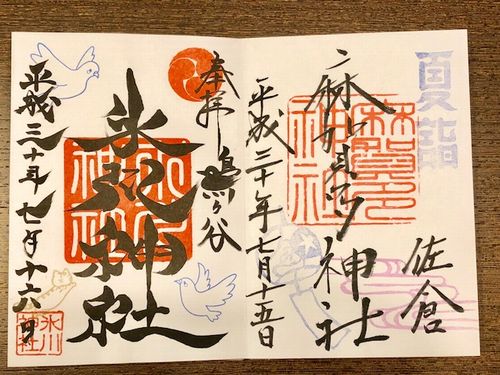 夏詣
佐倉
麻賀多神社
麻賀多
神社
平成三十年七月十五日
奉拝
鳩ヶ谷
氷川神社
氷川
神社
平成三十年七月十六日
氷川
神社